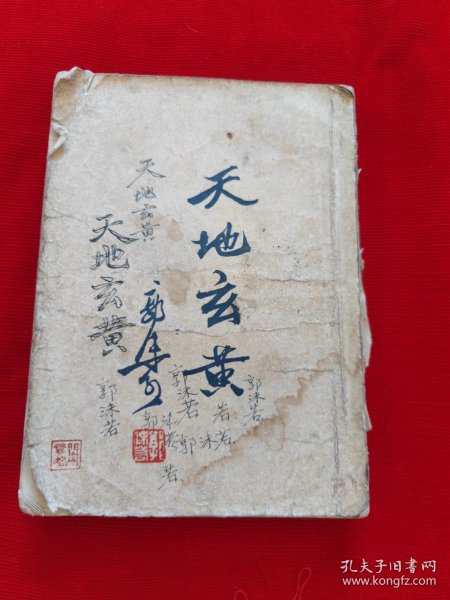 天地玄黄
郭沫若
天地玄黄
天地玄黄
郭沫若
郭沫若
郭沫若
郭沫若
若
若
孔夫子旧书网
www.kongfz.com